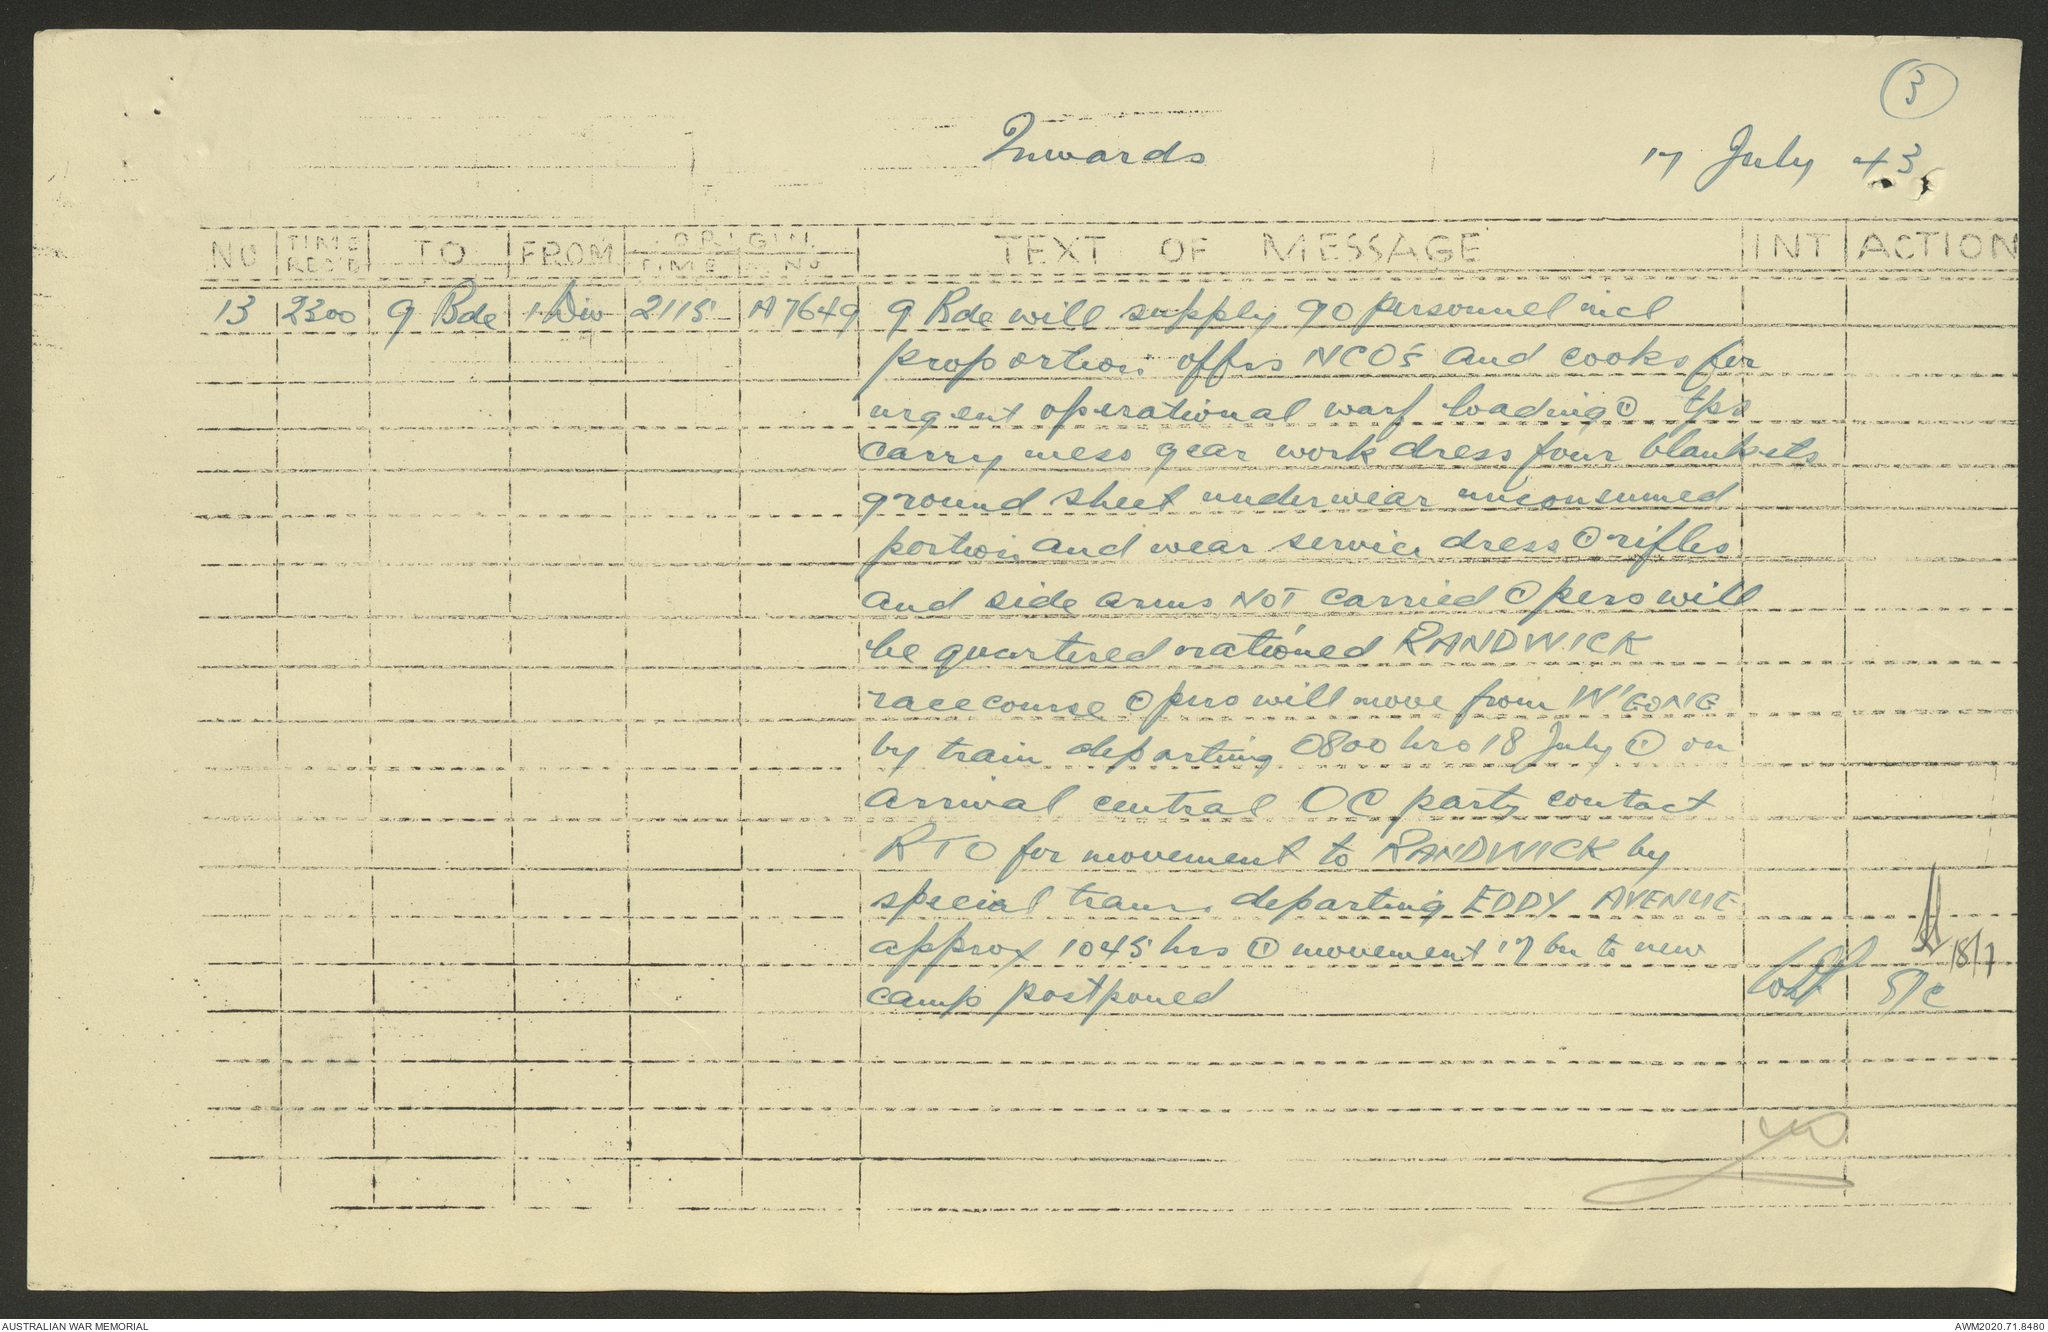 3
Inwards 17 July 43
NO TIME REC'D TO FROM ORIGIN. TIME NO TEXT OF MESSAGE INT ACTION
13 2300 9 Bde 1 Div 2115 A7649 9 Bde will supply 90 personnel incl
proportion offrs NCO's and cooks for
urgent operational warf loading ① tps
carry mess gear work dress four blankets
ground sheet underwear unconsumed
portion and wear service dress ① rifles
and side arms NOT carried ① pers will
be quartered rationed RANDWICK
racecourse ① pers will move from W'GONG
by train departing 0800 hrs 18 July ① on
arrival central OC party contact
RTO for movement to RANDWICK by
special tram departing EDDY AVENUE
approx 1045 hrs ① movement 17 bn to new
camp postponed S/C
18/7
AUSTRALIAN WAR MEMORIAL AWM2020.71.8480